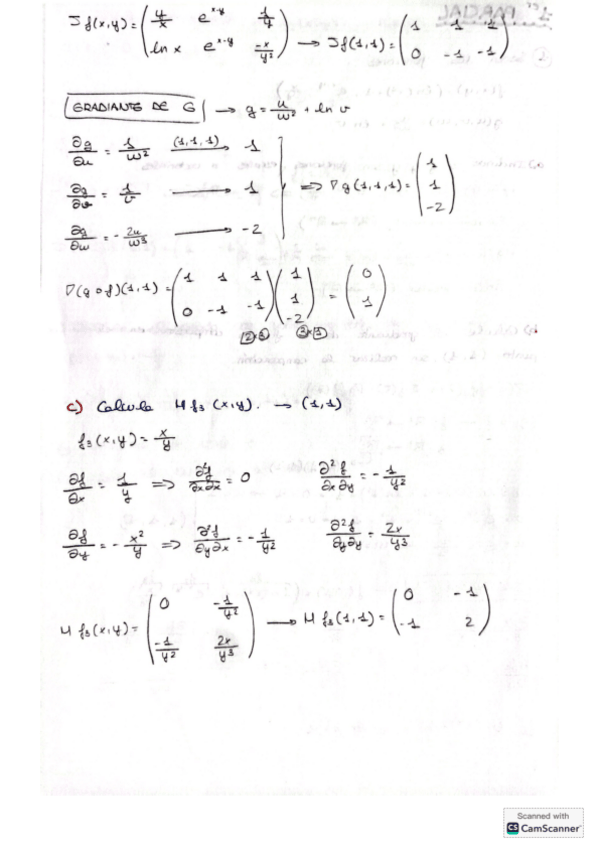 Jf(x,y) = ( y/x  e^{x-y}  1/y ; ln x  e^{x-y}  -x/y² ) → Jf(1,1) = ( 1 1 1 ; 0 -1 -1 )
GRADIANTE DE G → g = u/w² + ln v
∂g/∂u = 1/w² (1,1,1) → 1
∂g/∂v = 1/v → 1 ⟹ ∇g(1,1,1) = ( 1 ; 1 ; -2 )
∂g/∂w = - 2u/w³ → -2
∇(g o f)(1,1) = ( 1 1 1 ; 0 -1 -1 ) ( 1 ; 1 ; -2 ) = ( 0 ; 1 )
2x3 3x1
c) Calcula H f₃ (x,y). → (1,1)
f₃(x,y) = x/y
∂f/∂x = 1/y ⟹ ∂²f/∂x∂x = 0  ∂²f/∂x∂y = - 1/y²
∂f/∂y = - x²/y ⟹ ∂²f/∂y∂x = - 1/y²  ∂²f/∂y∂y = 2x/y³
H f₃(x,y) = ( 0  -1/y² ; -1/y²  2x/y³ ) → H f₃(1,1) = ( 0 -1 ; -1 2 )
Scanned with
CS CamScanner